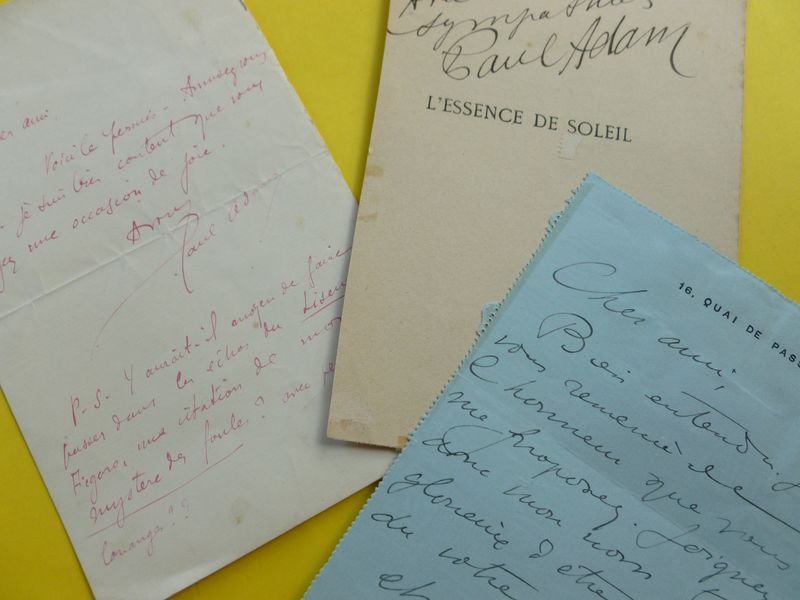 ami,
Voici le permis - Amusez vous
je suis bien content que vous
ayez une occasion de joie.
Paul Adam
P.S. Y aurait-il moyen de faire
passer dans les échos du
Figaro, une citation de mon
mystère des foules? avec
louanges??
sympathies
Paul Adam
L'ESSENCE DE SOLEIL
16, QUAI DE PASS
Cher ami,
Bien entendu. Je
vous remercie de
l'honneur que vous
me proposez. Joignez
donc mon nom
glorieux d'être
du votre